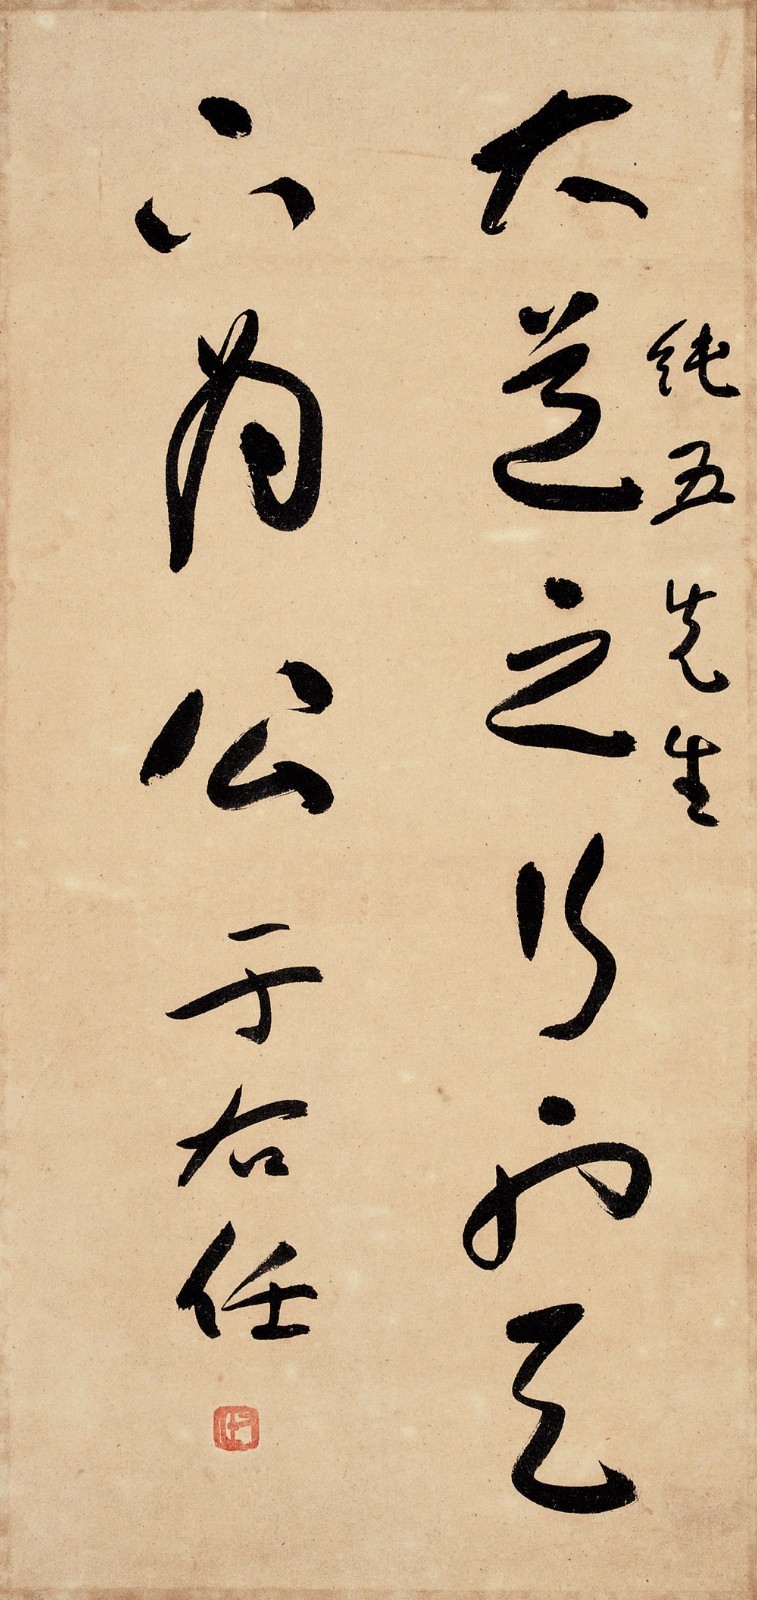 純五先生
大道之行也天
下為公
于右任